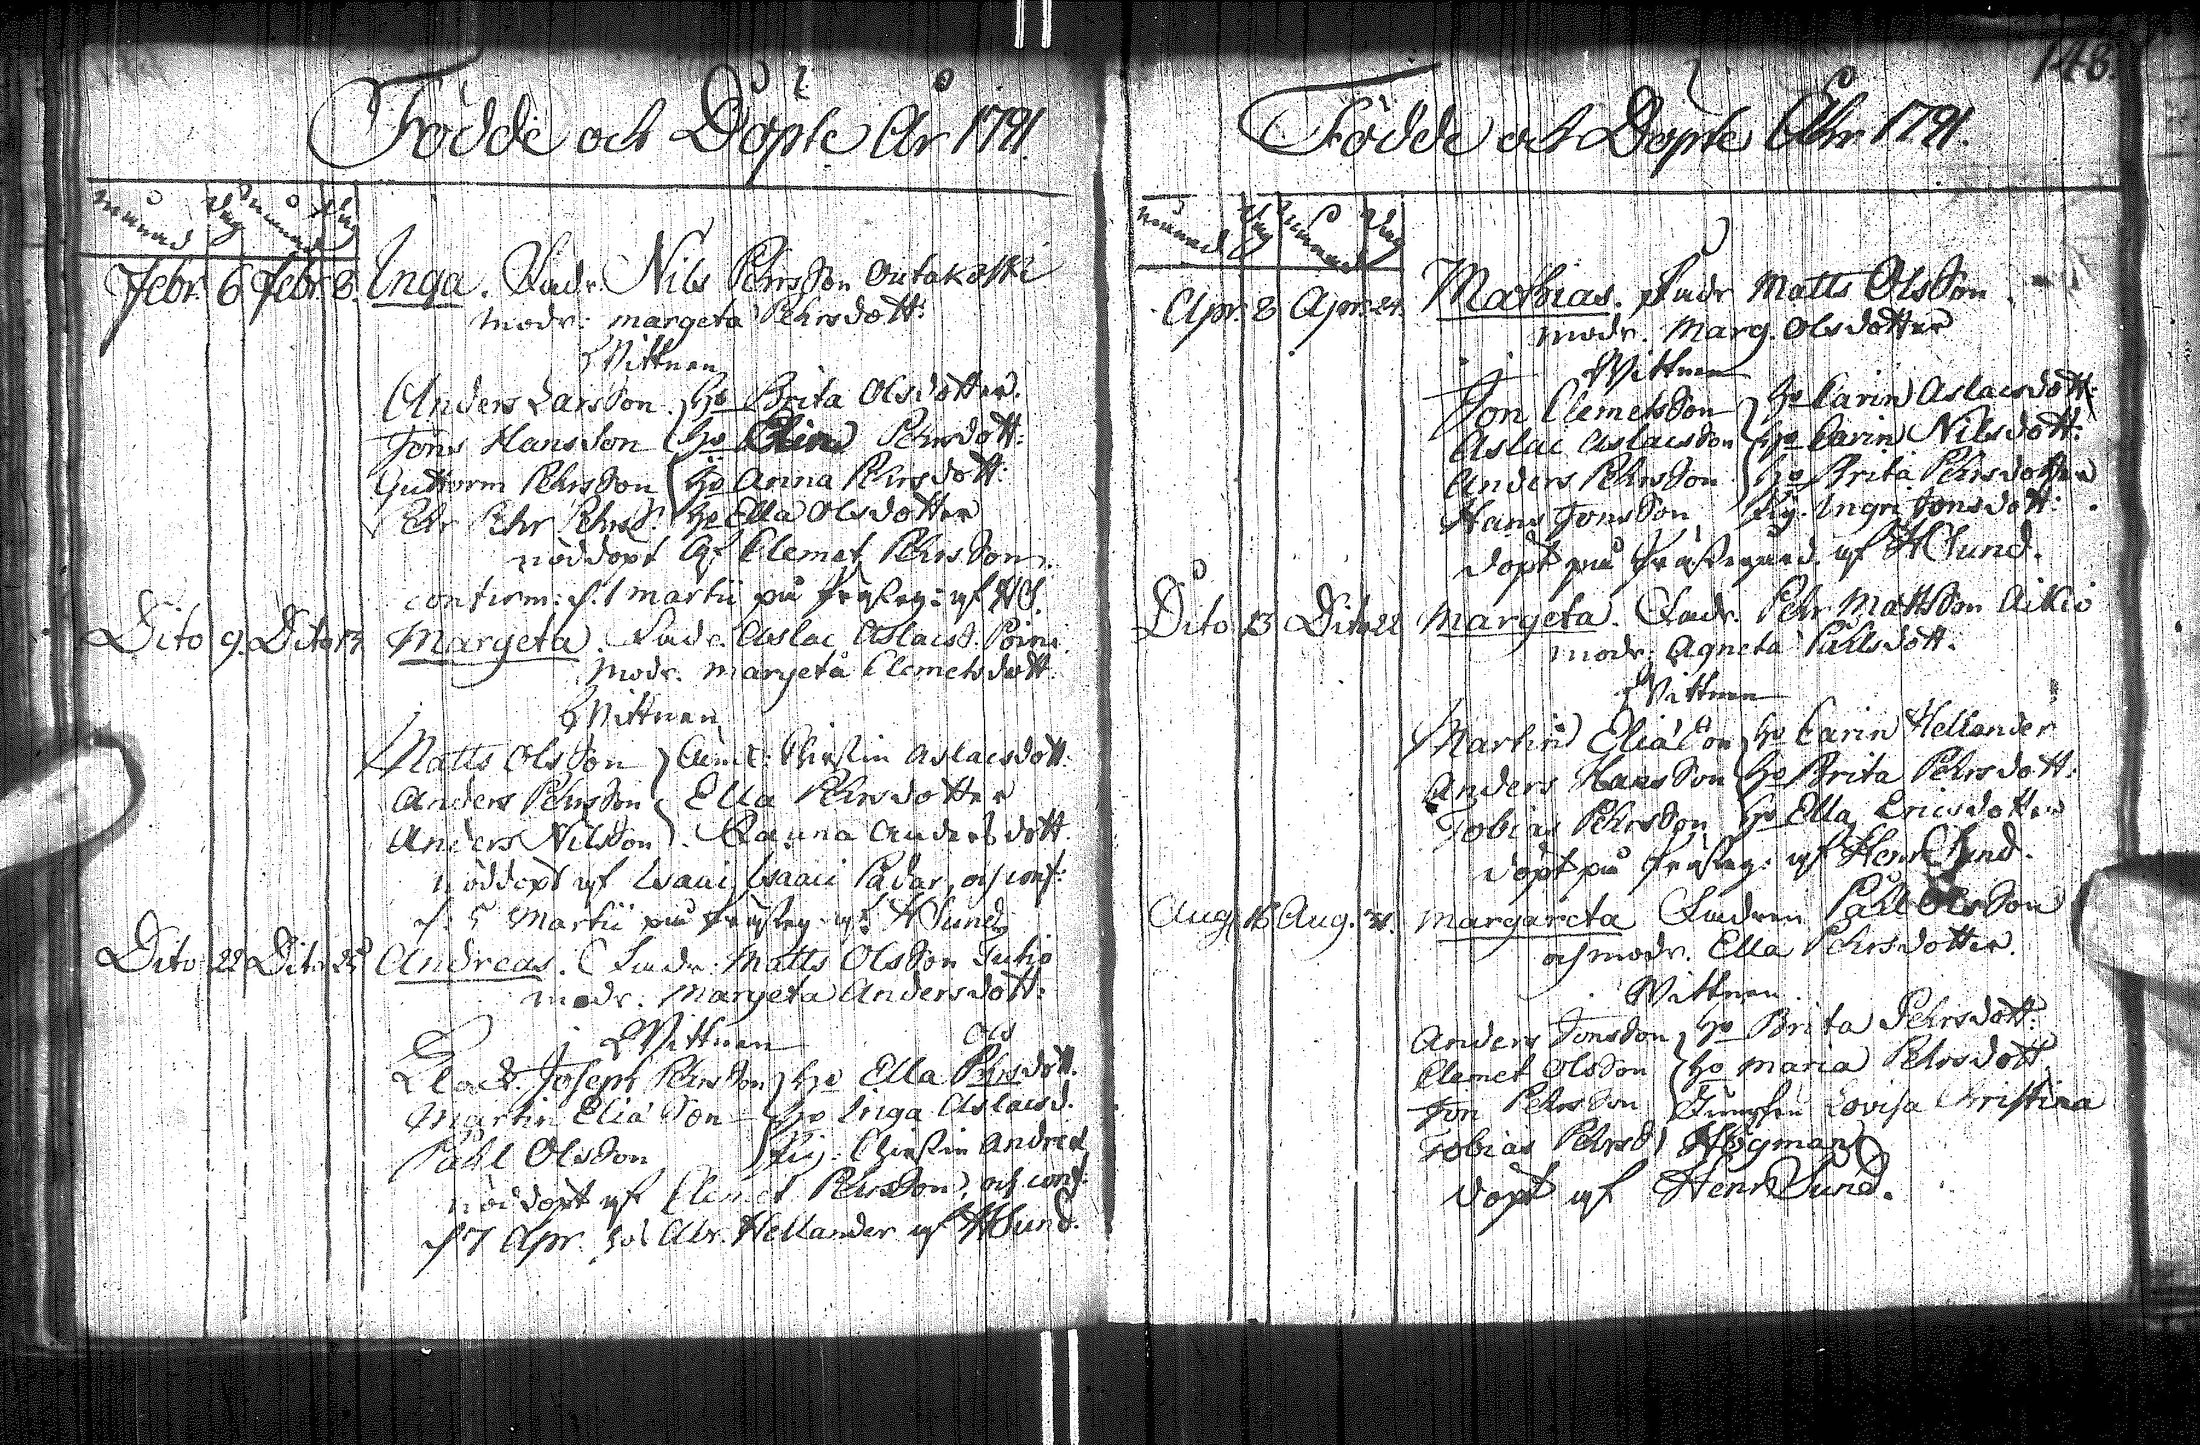 Födde och Döpte År 1791.
månad Dag månad Dag
Febr. 6 Febr. 8. Inga. Fadr. Nils Pehrsson Outakoski
modr: margeta Pehrsdott:
Wittnen
Anders Larsson. hu Brita Olsdotter.
Jöns Hansson hu Elin Pehrsdott:
Guttorm Pehrsson hu Anna Pehrsdott:
Pehr Pehrs. hu Ella Olsdotter
nöddöpt af Clemet Pehrsson.
confirm: d. 1 martii på Prästeg: af HS.
Dito 9. Dito 13 Margeta. Fadr. Aslac Aslacs.
Modr. margeta Clemetsdott.
Wittnen
Matts Olsson Christin Aslacsdott.
Anders Pehrsson Ella Pehrsdotter
Anders Nilsson. Rauna Andersdott.
nöddöpt af Isaac Isaaci Padar, och conf:
d. 5 Martii på Prästeg. af HSund
Dito 22 Dito 25 Andreas. Fadr. Matts Olsson
modr. Margeta Andersdott:
Wittnen Ols
Joseph Pehrsson hu Ella Pehrsdott.
Martin Elia'Son hu Inga Aslacsd.
Påhl Olsson Pig. Christin Andred
nöddöpt af Clemet Pehrsson, och conf:
d 7 Apr. hos Abr. Hellander af HSund.
148.
Födde och Döpte Åhr 1791.
månad Dag månad Dag
Apr. 8 Apr. 21. Mathias. Fadr Matts Olsson
modr. Marg. Olsdotter
Wittnen
Jon Clemetsson hu Carin Aslacsdott:
Aslac Aslacsson hu Carin Nilsdott:
Anders Pehrsson hu Brita Pehrsdotter
Hans Jonsson Pig. Ingri Jonsdott:
döpt på Prästegård. af HSund.
Dito 13 Dito 22 Margeta. Fadr. Pehr Mattsson Aikio
modr: Agneta Påhlsdott.
Wittnen
Martin Elia'Son hu Carin Hellander
Anders Hansson hu Brita Pehrsdott:
Tobias Pehrsson hu Ella Ericsdotter
döpt på Prästeg: af HenrSund.
Aug. 16 Aug. 21. Margareta Fadren Påhl Olsson
och modr. Ella Pehrsdotter.
Wittnen.
Anders Jonsson hu Brita Pehrsdott:
Clemet Olsson hu Maria Pehrsdott.
Jon Pehrsson Jumfru Lovisa Christina
Tobias Pehrsd Högman
döpt af HenrSund.